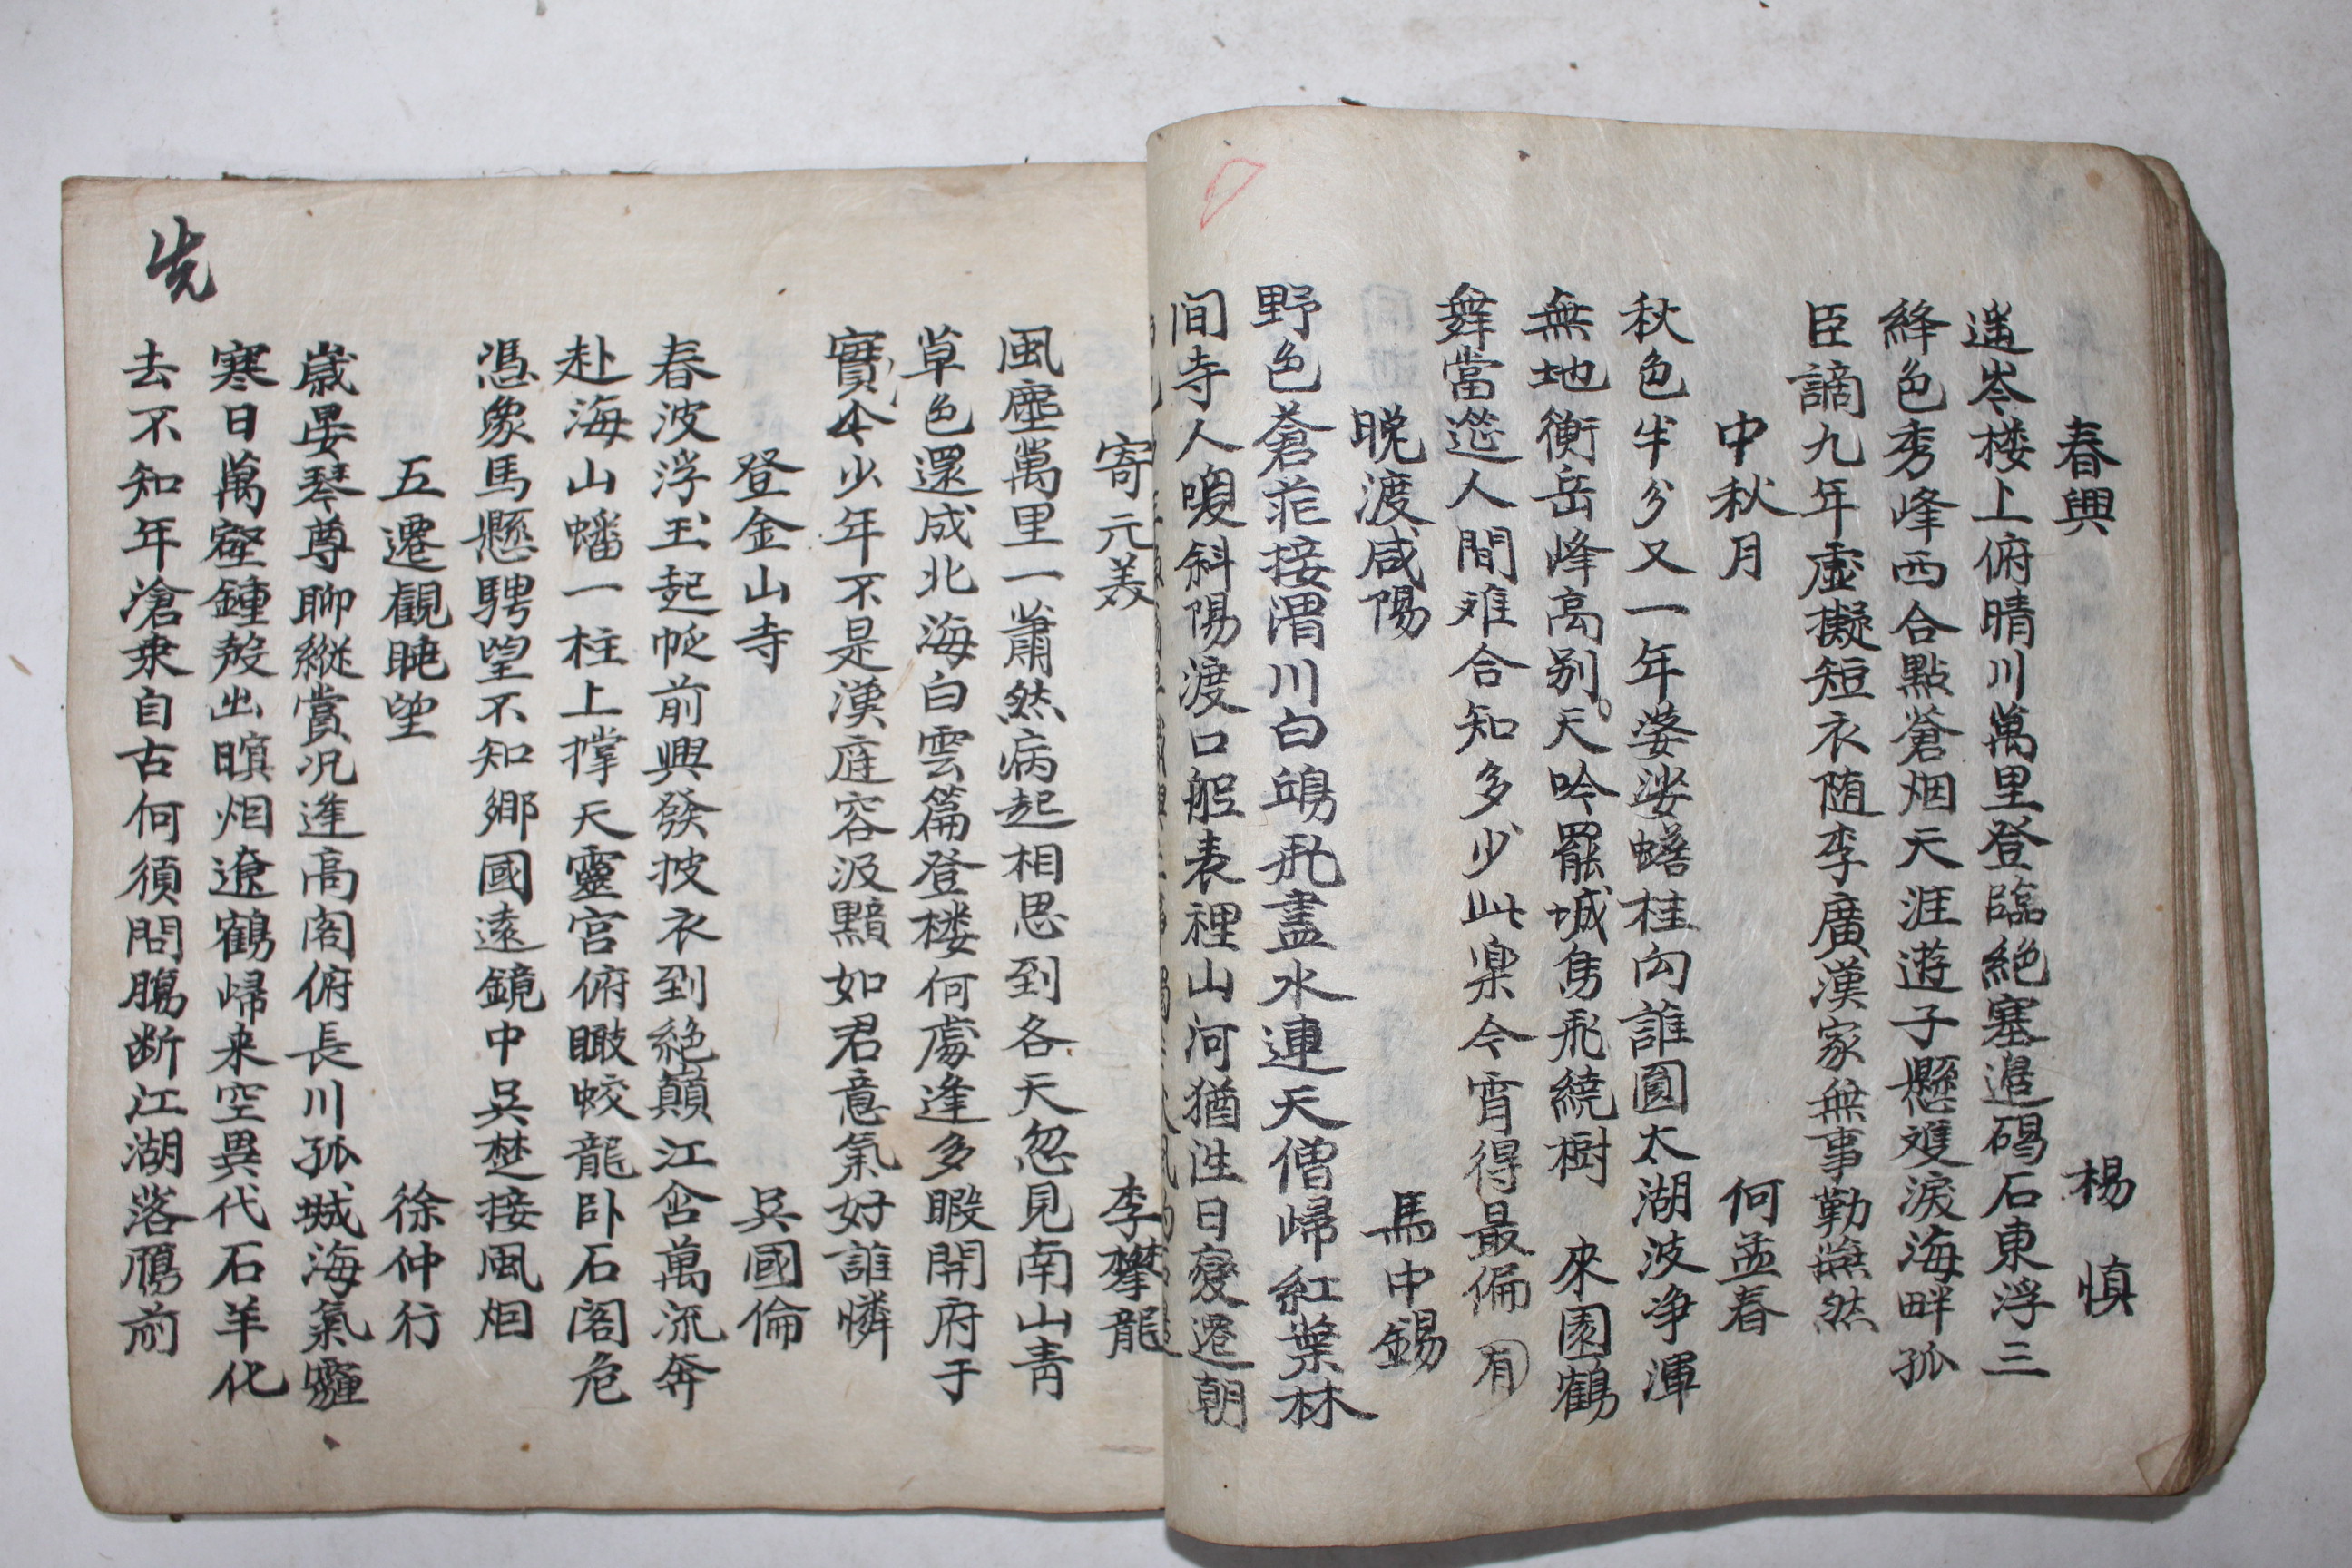 春興 楊慎
遥岑楼上俯晴川萬里登臨絶塞邉碣石東浮三
絳色秀峰西合點蒼烟天涯遊子懸雙淚海畔孤
臣謫九年虚擬短衣随李廣漢家無事勒燕然
中秋月 何孟春
秋色半分又一年婆娑蟾桂向誰圓太湖波净渾
無地衡岳峰高别天吟罷城隽飛繞樹 來園鶴
舞當筵人間难合知多少此樂今宵得最偏 有
晩渡咸陽 馬中錫
野色蒼茫接渭川白鴎飛盡水連天僧歸紅葉林
间寺人喚斜陽渡口船表裡山河猶往日變遷朝
寄元美 李攀龍
風塵萬里一蕭然病起相思到各天忽見南山青
草色還成北海白雲篇登楼何處逢多暇開府于
實今少年不是漢庭容汲黯如君意氣好誰憐
登金山寺 吳國倫
春波浮玉起帆前興發披衣到絶巔江合萬流奔
赴海山蟠一柱上撑天靈宫俯瞰蛟龍卧石阁危
憑象馬懸騁望不知鄉國遠鏡中吳楚接風烟
五遷觀晚望 徐仲行
歲晏琴尊聊縱賞况逢高阁俯長川孤城海氣霾
寒日萬壑鍾殷出暝烟遼鶴歸来空異代石羊化
去不知年滄桑自古何須問腸断江湖落鴈前
先